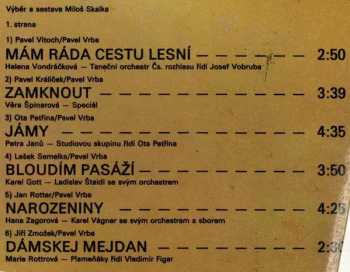 Výběr a sestava Miloš Skalka
1. strana
1) Pavel Vitoch/Pavel Vrba
MÁM RÁDA CESTU LESNÍ — — — — — — 2:50
Helena Vondráčková — Taneční orchestr Čs. rozhlasu řídí Josef Vobruba
2) Pavel Králíček/Pavel Vrba
ZAMKNOUT — — — — — — — — — 3:39
Věra Špinarová — Speciál
3) Ota Petřina/Pavel Vrba
JÁMY — — — — — — — — — — — 4:35
Petra Janů — Studiovou skupinu řídí Ota Petřina
4) Lešek Semelka/Pavel Vrba
BLOUDÍM PASÁŽÍ — — — — — — — 3:50
Karel Gott — Ladislav Štaidl se svým orchestrem
5) Jan Rotter/Pavel Vrba
NAROZENINY — — — — — — — — 4:25
Hana Zagorová — Karel Vágner se svým orchestrem a sborem
6) Jiří Zmožek/Pavel Vrba
DÁMSKEJ MEJDAN — — — — — — —
Marie Rottrová — Plameňáky řídí Vladimír Figar